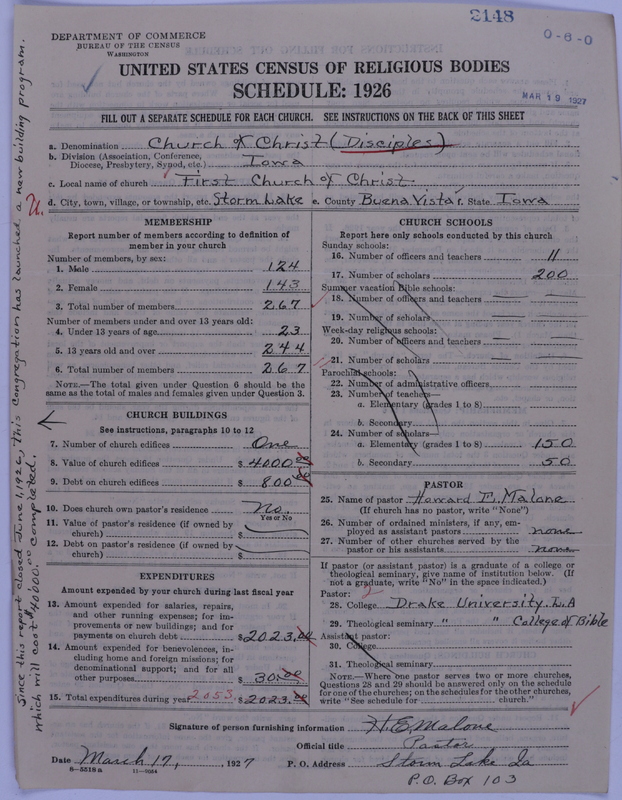 2148
0-8-0
DEPARTMENT OF COMMERCE
BUREAU OF THE CENSUS
WASHINGTON
UNITED STATES CENSUS OF RELIGIOUS BODIES
SCHEDULE: 1926
MAR 19 1927
FILL OUT A SEPARATE SCHEDULE FOR EACH CHURCH. SEE INSTRUCTIONS ON THE BACK OF THIS SHEET
a. Denomination Church of Christ (Disciples)
b. Division (Association, Conference, Diocese, Presbytery, Synod, etc.) Iowa
c. Local name of church First Church of Christ.
d. City, town, village, or township, etc. Storm Lake e. County Buena Vista f. State Iowa
MEMBERSHIP
Report number of members according to definition of
member in your church
Number of members, by sex:
1. Male 124
2. Female 143
3. Total number of members 267
Number of members under and over 13 years old:
4. Under 13 years of age 23
5. 13 years old and over 244
6. Total number of members 267
NOTE.—The total given under Question 6 should be the
same as the total of males and females given under Question 3.
CHURCH BUILDINGS
See instructions, paragraphs 10 to 12
7. Number of church edifices One
8. Value of church edifices $4000.00
9. Debt on church edifices $800.00
10. Does church own pastor's residence? No.
Yes or No
11. Value of pastor's residence (if owned by
church) $
12. Debt on pastor's residence (if owned by
church) $
EXPENDITURES
Amount expended by church during last fiscal year
13. Amount expended for salaries, repairs,
and other running expenses; for im-
provements or new buildings; and for
payments on church debt $2023.00
14. Amount expended for benevolences, in-
cluding home and foreign missions; for
denominational support; and for all
other purposes $30.00
15. Total expenditures during year 2053 $2023.00
CHURCH SCHOOLS
Report here only schools conducted by this church
Sunday schools:
16. Number of officers and teachers 11
17. Number of scholars 200
Summer vacation Bible schools:
18. Number of officers and teachers
19. Number of scholars
Week-day religious schools:
20. Number of officers and teachers
21. Number of scholars
Parochial schools:
22. Number of administrative officers
23. Number of teachers—
a. Elementary (grades 1 to 8)
b. Secondary
24. Number of scholars—
a. Elementary (grades 1 to 8) 150
b. Secondary 50
PASTOR
25. Name of pastor Howard E. Malone
(If church has no pastor, write "None")
26. Number of ordained ministers, if any, em-
ployed as assistant pastors none
27. Number of other churches served by the
pastor or his assistants none
If pastor (or assistant pastor) is a graduate of a college or
theological seminary, give name of institution below. (If
not a graduate, write "No" in the space indicated.)
Pastor:
28. College Drake University. L.A
29. Theological seminary " " College of Bible
Assistant pastor:
30. College
31. Theological seminary
NOTE.—Where one pastor serves two or more churches,
Questions 28 and 29 should be answered only on the schedule
for one of the churches; on the schedules for the other churches,
write "See schedule for church."
Signature of person furnishing information H. E. Malone
Official title Pastor
Date March 17, 1927 P. O. Address Storm Lake Ia
8-5518a 11-2054
P.O. Box 103
Since this report closed June 1, 1926, this congregation has launched a new building program.
which will cost $40000.00 completed.